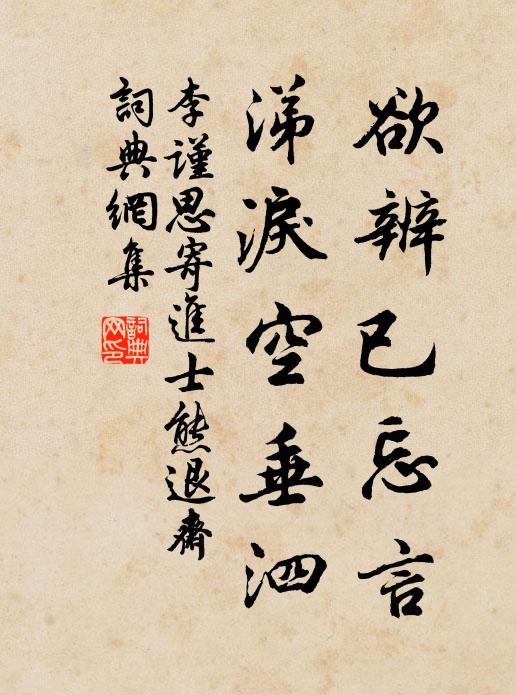 欲辨已忘言
涕淚空垂泗
李謹思寄進士熊退齋
詞典網集
詞典网印